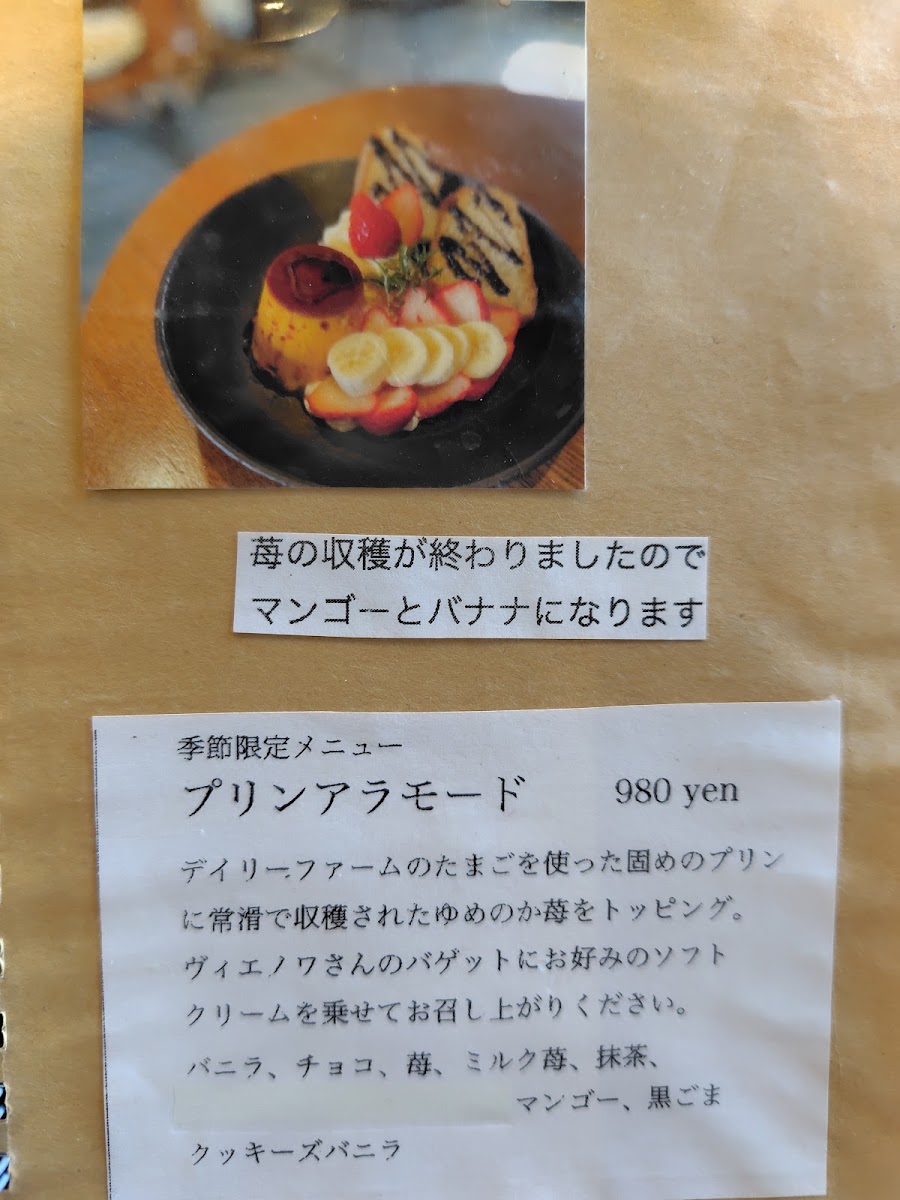 苺の収穫が終わりましたので
マンゴーとバナナになります
季節限定メニュー
プリンアラモード 980 yen
デイリーファームのたまごを使った固めのプリン
に常滑で収穫されたゆめのか苺をトッピング。
ヴィエノワさんのバゲットにお好みのソフト
クリームを乗せてお召し上がりください。
バニラ、チョコ、苺、ミルク苺、抹茶、
マンゴー、黒ごま
クッキーズバニラ